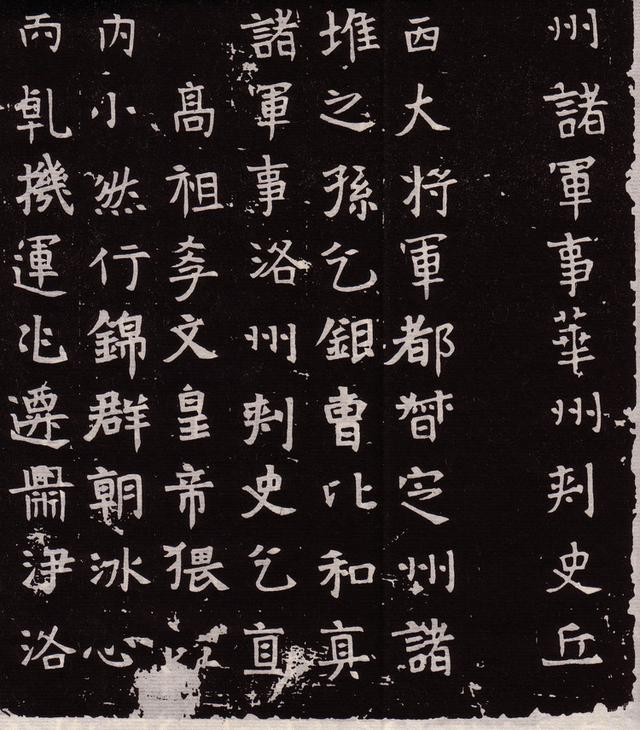 州諸軍事華州刾史丘
西大将軍都督㝎州諸
堆之孫乞銀曹比和真
諸軍事洛州刾史乞直
高祖孝文皇帝猥
内小然行錦群朝冰心
而乹機運兆遷鼎洢洛